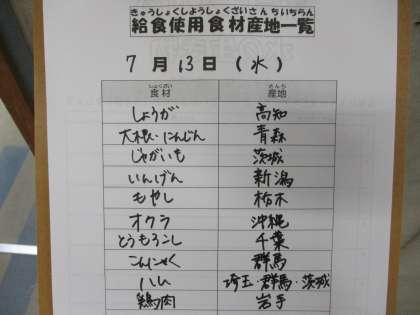 きゅうしょくしようしょくざいさんちいちらん
給食使用食材産地一覧
7月13日(水)
しょくざい さんち
食材 産地
しょうが 高知
大根・にんじん 青森
じゃがいも 茨城
いんげん 新潟
もやし 栃木
オクラ 沖縄
とうもろこし 千葉
こんにゃく 群馬
ハム 埼玉・群馬・茨城
鶏肉 岩手